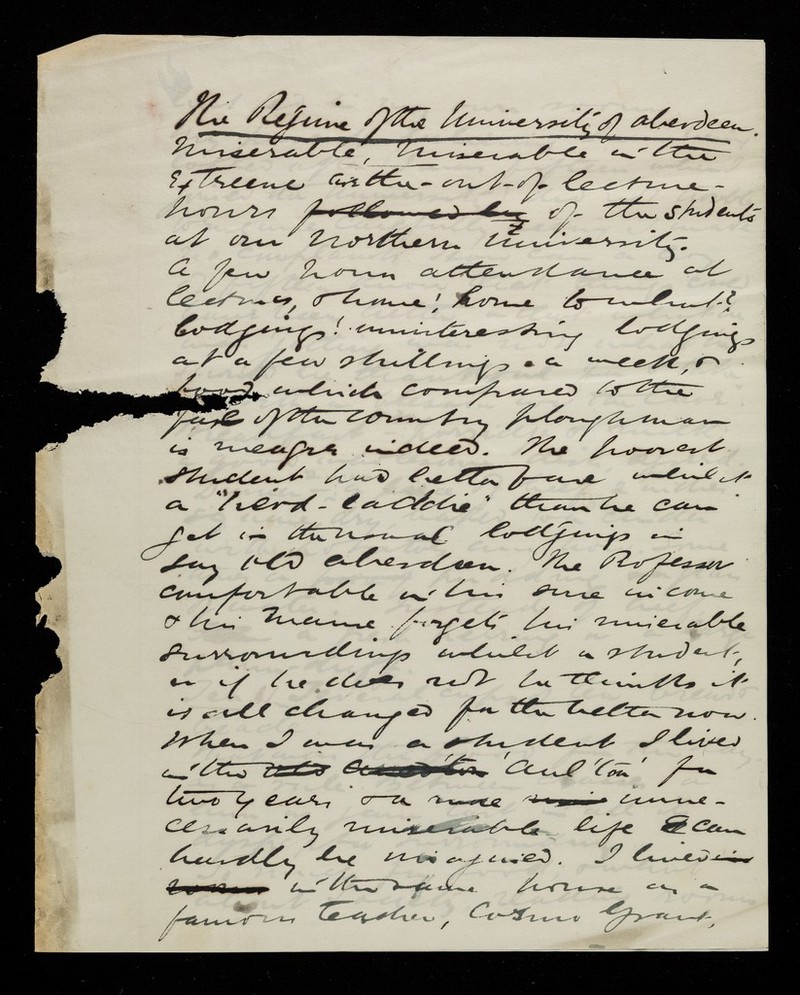 The Regime of the University of aberdeen.
Miserable, Miserable in the
Extreme are the-out-of-lecture-
hours followed by of the students
at our Northern University.
A few hours attendance at
lectures, & home! home to what?
lodgings! uninteresting lodgings
at a few shillings a week, &
food which compared to the
fare of the country ploughman
is meagre indeed. The poorest
student had better fare whilst
a "herd-laddie" than he can
get in the usual lodgings in
say old aberdeen. The Professor
comfortable in his sure income
& his Manse forgets his miserable
surroundings whilst a student,
or if he does not he thinks it
is all changed for the better now.
When I was a student I lived
in the old 'Aul 'ton' for
two years & a more unne-
cessarily miserable life can
hardly be imagined. I lived in
in the same house as a
famous teacher, Cosmo Grant,